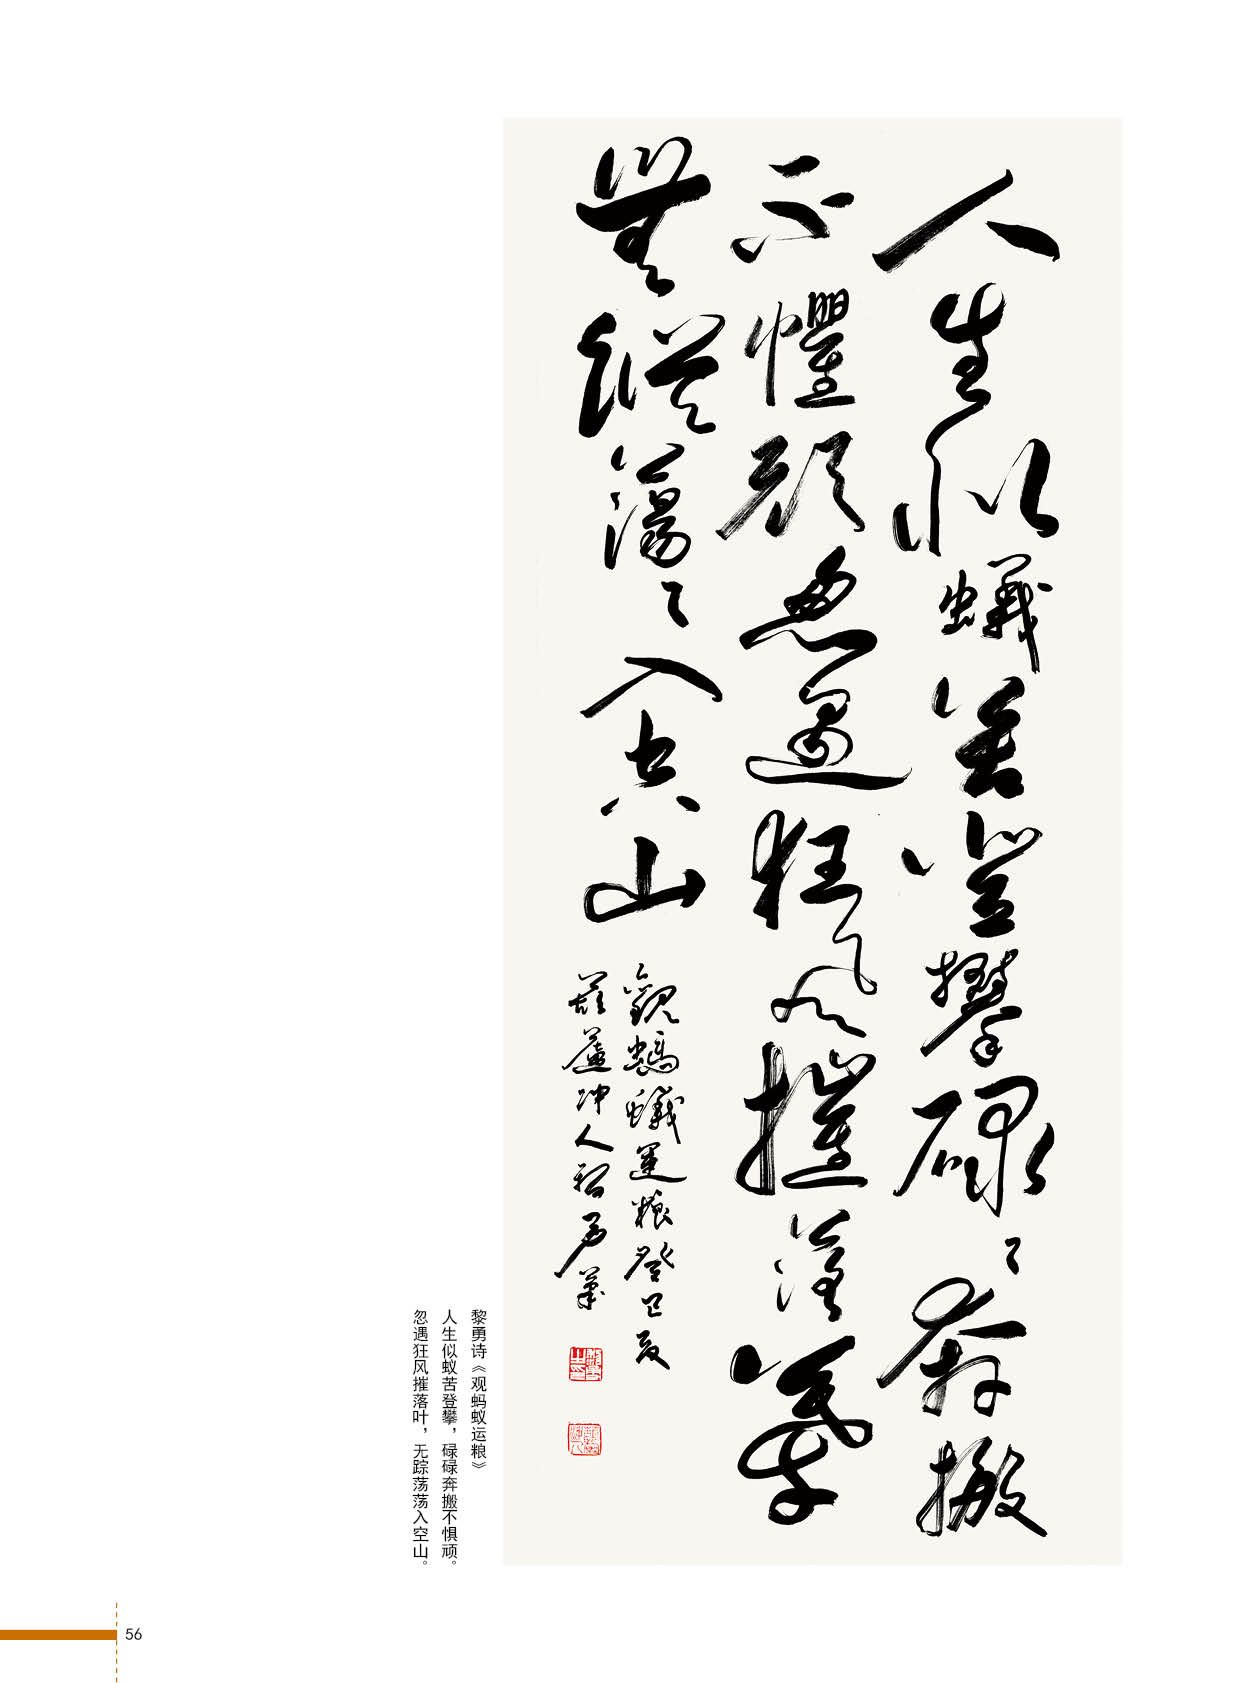 人生似蟻苦登攀碌々奔搬
不懼頑忽遇狂風摧落葉
無蹤蕩々入空山
觀螞蟻運糧癸巳夏
葫蘆沖人黎勇筆
黎勇诗《观蚂蚁运粮》
人生似蚁苦登攀，碌碌奔搬不惧顽。
忽遇狂风摧落叶，无踪荡荡入空山。
56